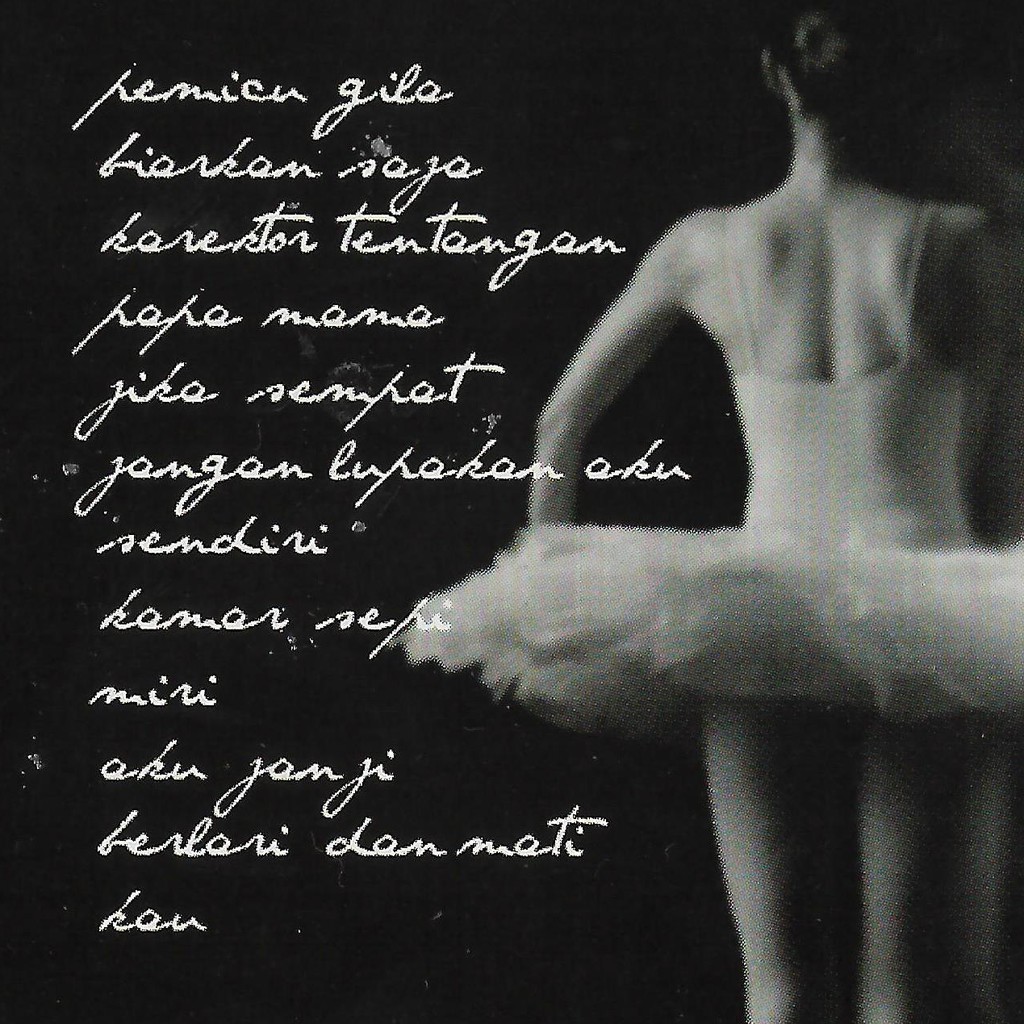 pemicu gila
biarkan saja
karektor tentangan
papa mama
jika sempat
jangan lupakan aku
sendiri
kamar sepi
miri
aku janji
berlari dan mati
kau